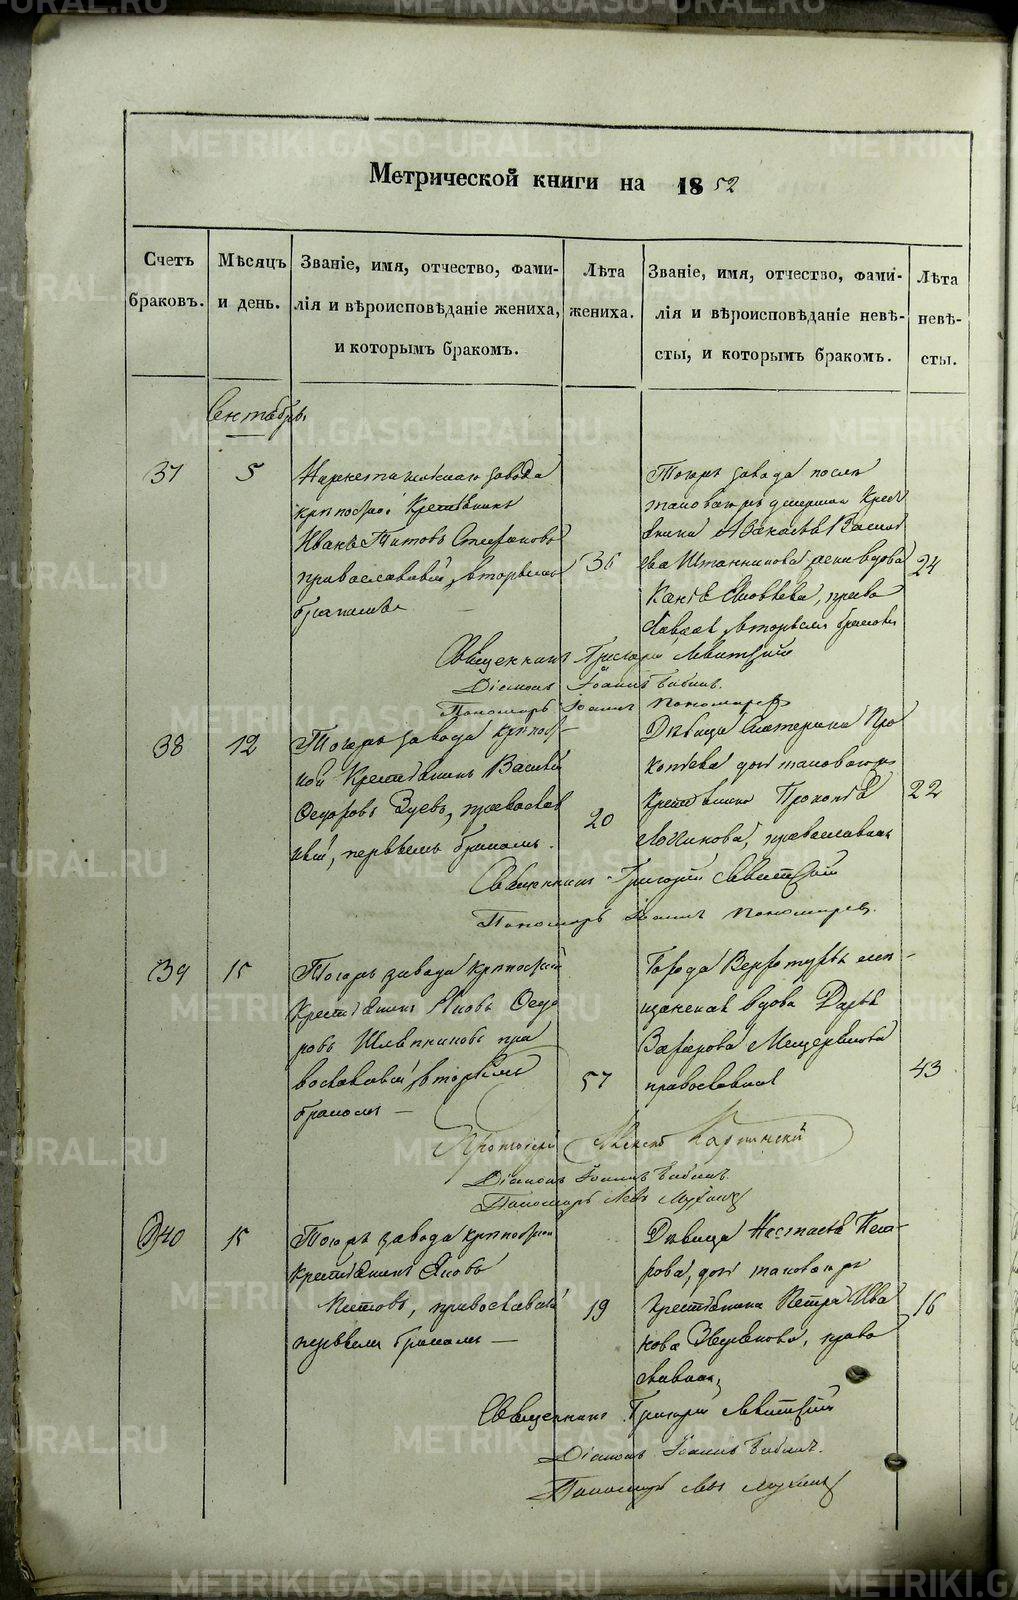 Метрической книги на 1852
Счетъ браковъ.
Мѣсяцъ и день.
Званіе, имя, отчество, фами-
лія и вѣроисповѣданіе жениха,
и которымъ бракомъ.
Лѣта
жениха.
Званіе, имя, отчество, фами-
лія и вѣроисповѣданіе невѣ-
сты, и которымъ бракомъ.
Лѣта
невѣ-
сты.
Сентябрь
37
5
завода
Крестьянинъ
Иванъ Титовъ
православный, вторымъ
бракомъ
36
Тогожъ завода послѣ
вдова
вторымъ бракомъ
24
Священникъ Григорій Левитскій
Діаконъ Іоаннъ Бабинъ.
Пономарь Іоаннъ Пономаревъ
38
12
Тогожъ завода крѣпост-
ной Крестьянинъ Василій
Ѳедоровъ Зуевъ, православ
ный, первымъ бракомъ.
20
Дѣвица Екатерина Про
копьева дочь таковагожъ
крестьянина Прокопья
Логинова, православная
22
Священникъ Григорій Левитскій
Пономарь Іоаннъ Пономаревъ.
39
15
Тогожъ завода крѣпостной
Крестьянинъ Яковъ Ѳедо
ровъ пра
вославный, вторымъ
бракомъ —
57
Города Верхотурья мѣ-
щанская вдова Дарья
Захарова Мещерякова
православная
43
Протоіерей Алексѣй
Діаконъ Іоаннъ Бабинъ.
Пономарь Левъ
40
15
Тогожъ завода крѣпостной
крестьянинъ Яковъ
Титовъ, православный
первымъ бракомъ —
19
Дѣвица Настасья Пет-
рова, дочь таковагожъ
крестьянина Петра Ива
нова Звѣрякова, право
славная,
16
Священникъ Григорій Левитскій
Діаконъ Іоаннъ Бабинъ.
Пономарь Левъ
METRIKI.GASO-URAL.RU